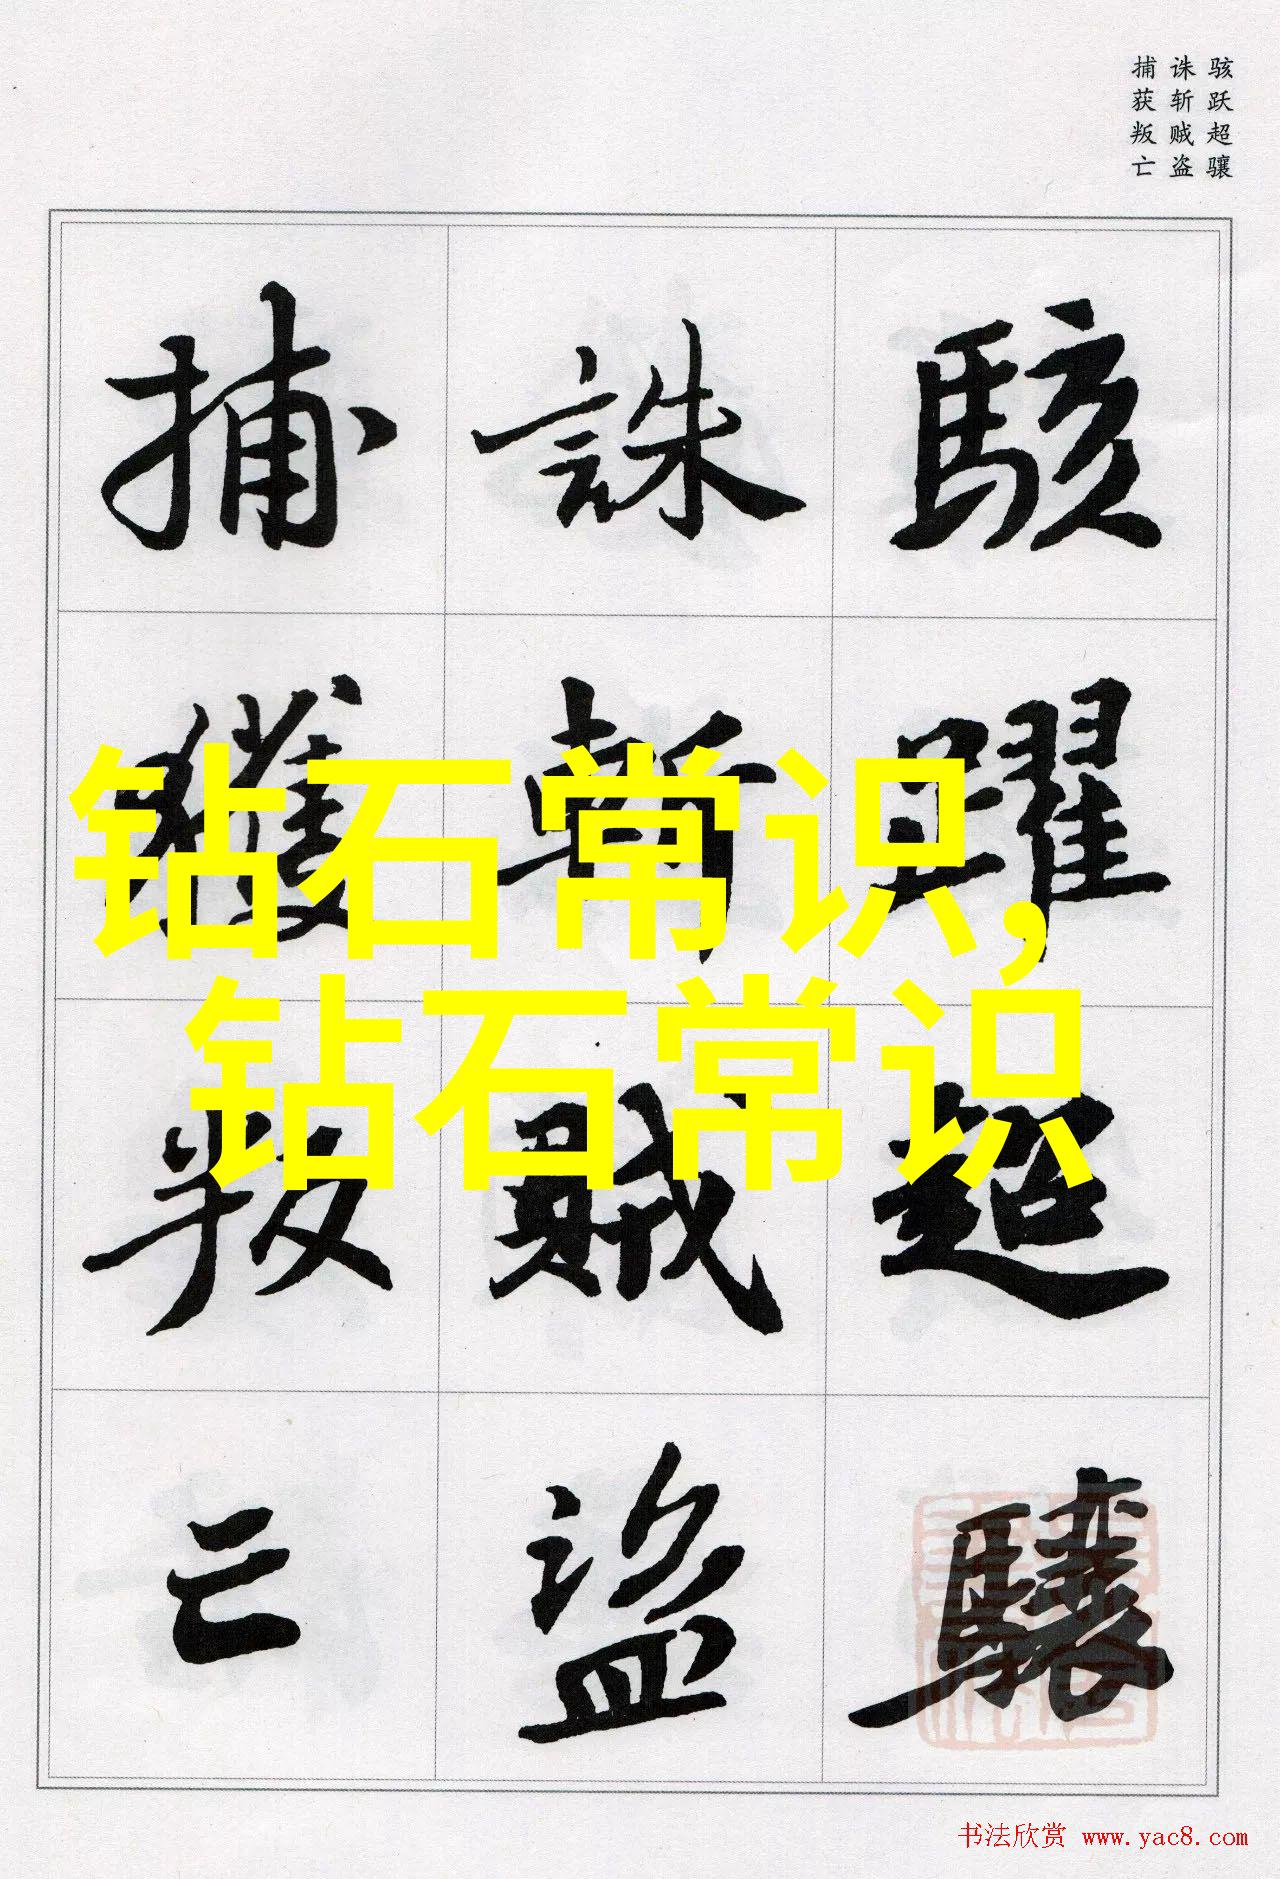 骇跃超骧
诛斩贼盗
捕获叛亡
駭躍超驤
誅斬賊盜
捕獲叛亡
钻石常识,
钻石常识
书法欣赏 www.yac8.com